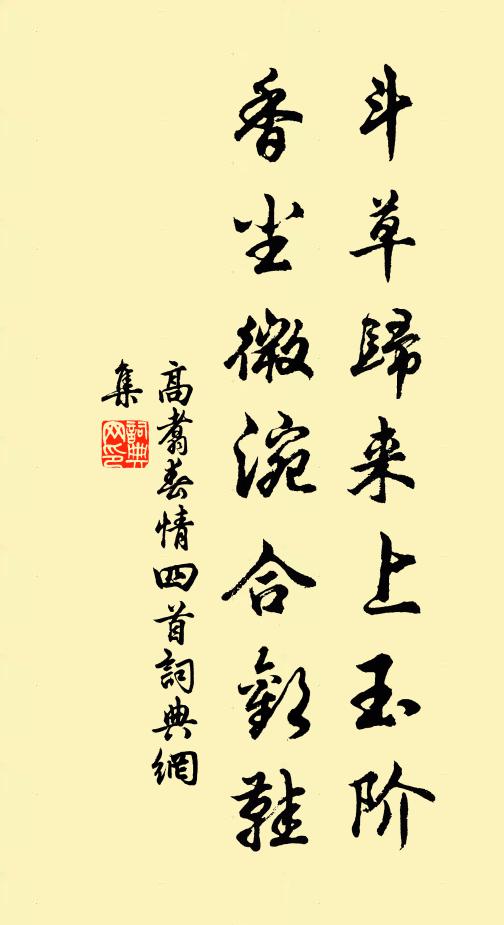 斗草歸来上玉阶
香尘微涴合歡鞋
高翥春情四首詞典網
集
詞典网印